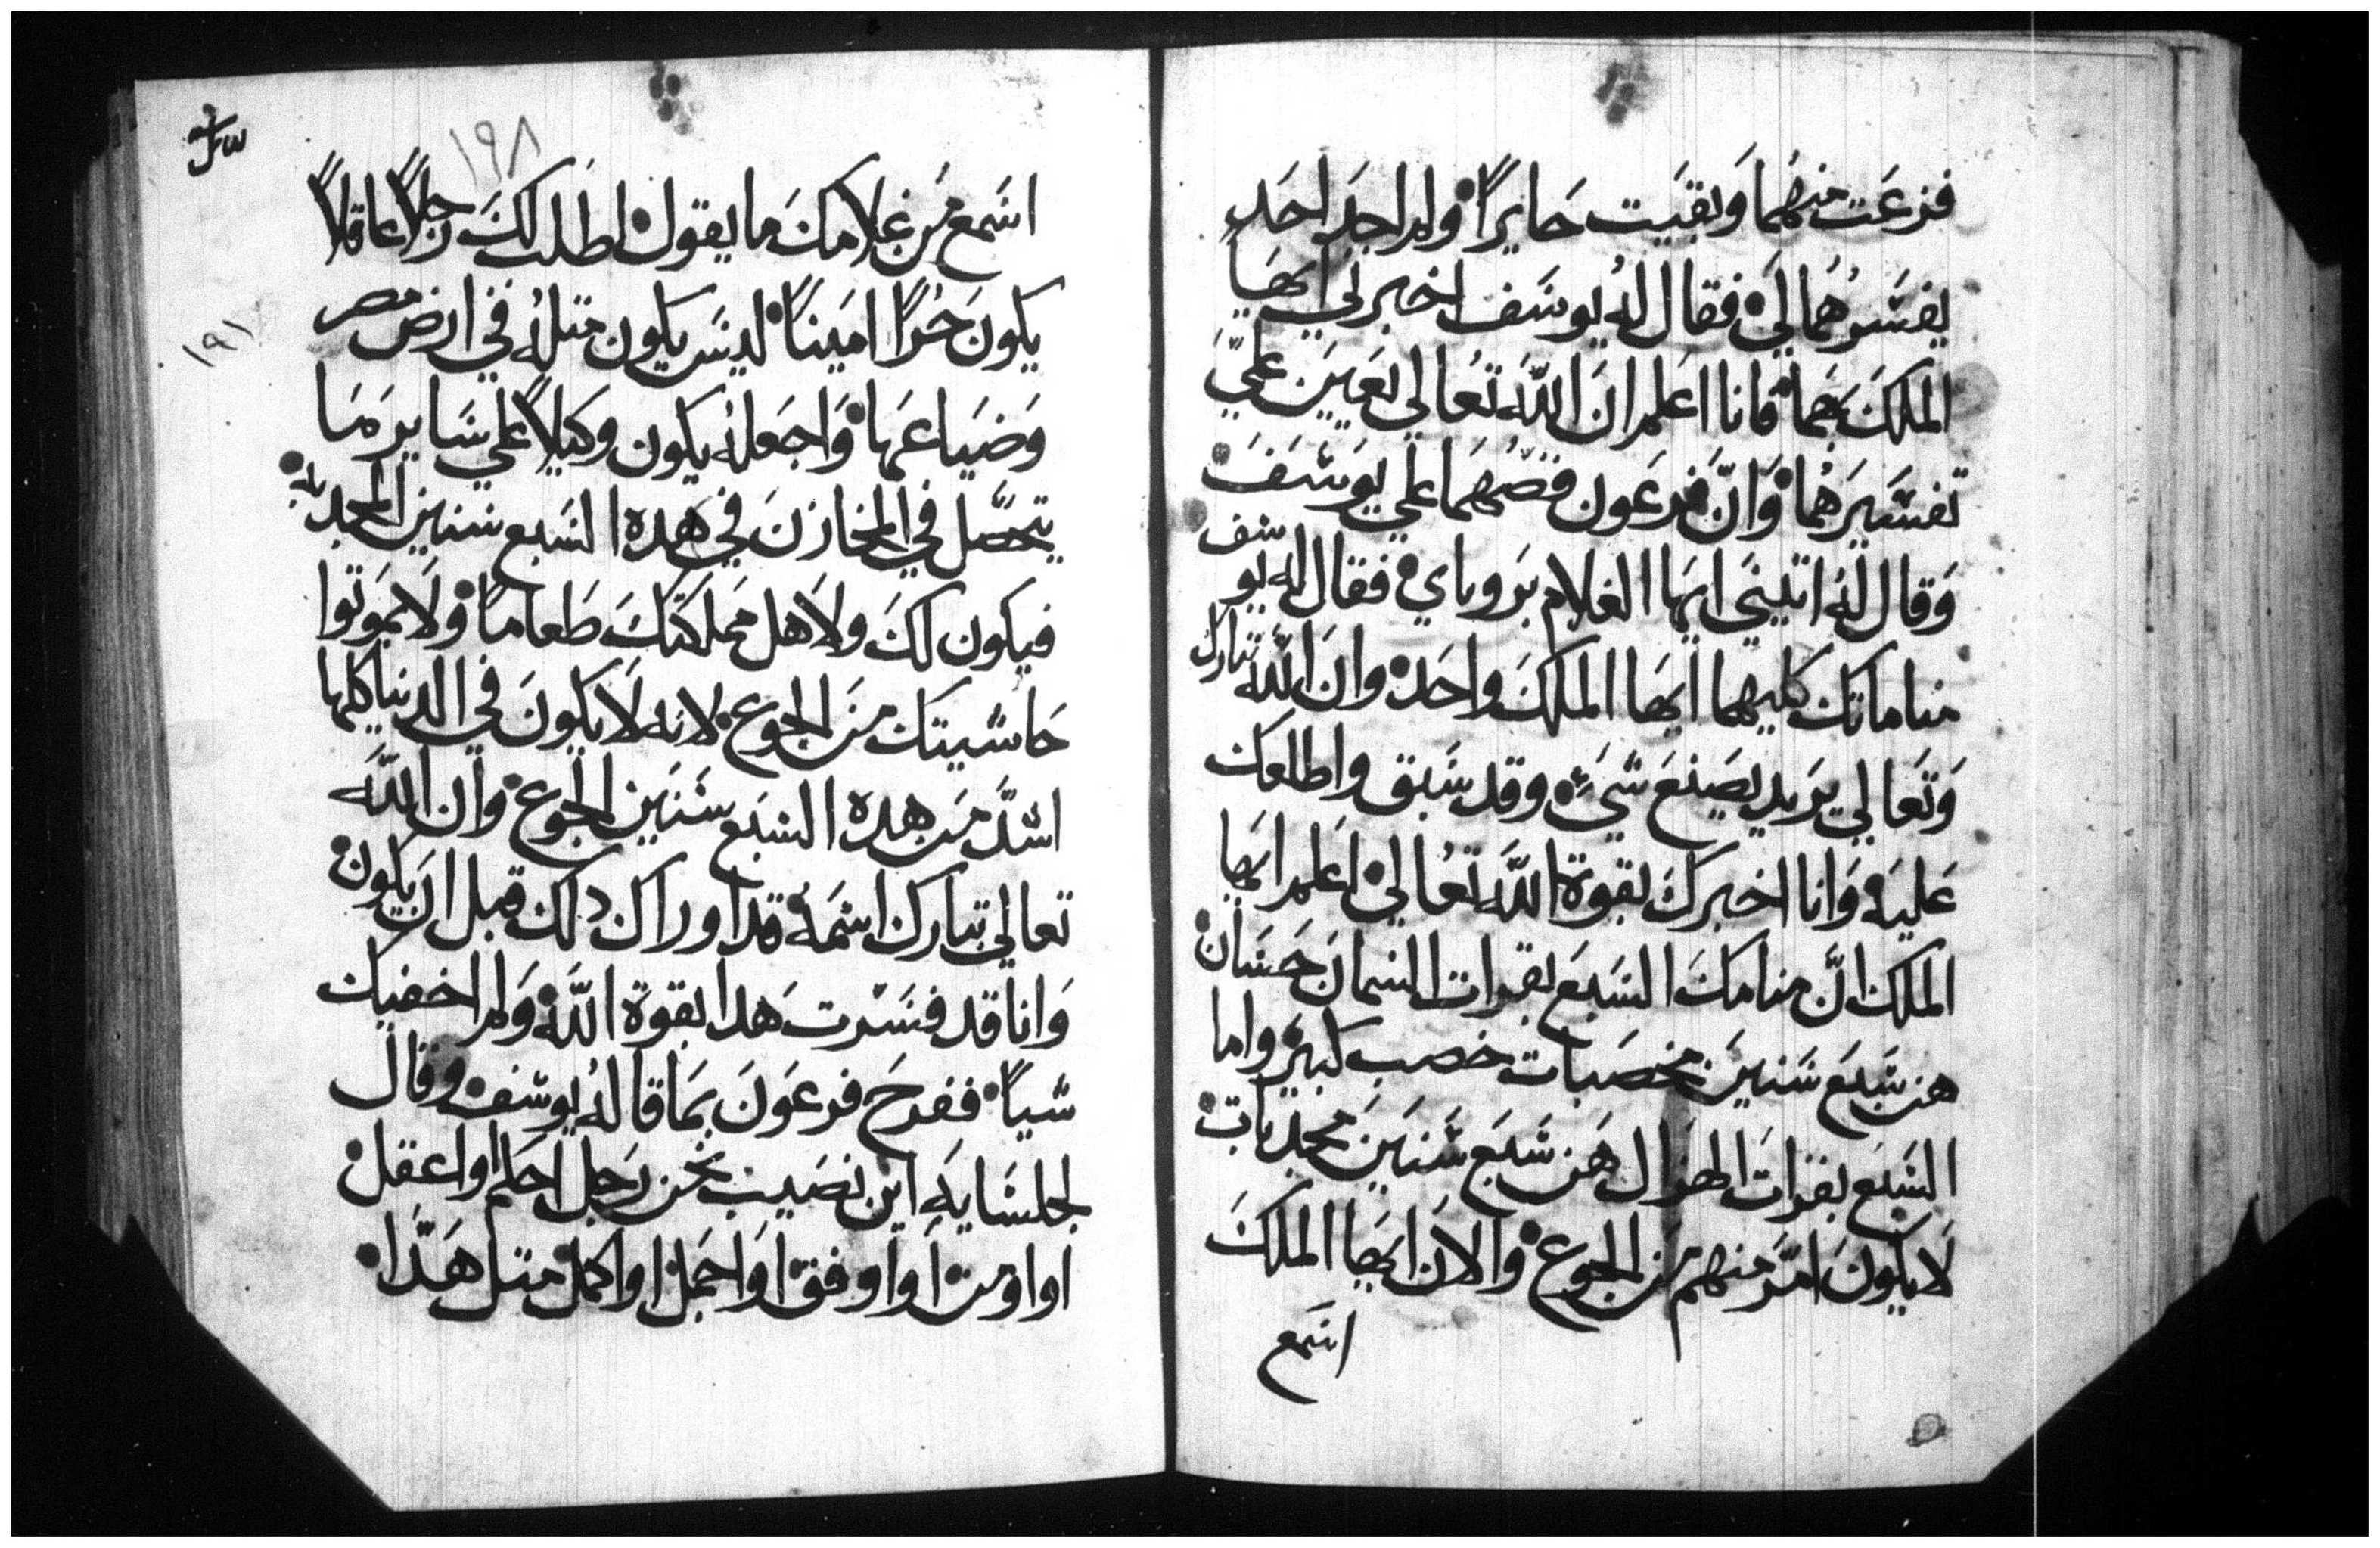 فزعت منهما وبقيت حايراً ولم اجد احد
يفسرهما لي فقال له يوسف اخبرني ايها
الملك بهما فانا اعلم ان الله تعالي يعينني علي
تفسيرهما وان فرعون قصهما علي يوسف
وقال له انبيني ايها الغلام بروياي فقال له يوسف
مناماتك كليهما ايها الملك واحد وان الله تبارك
وتعالي يريد يصنع شيء وقد سبق واطلعك
عليه وانا اخبرك بقوة الله تعالي اعلم ايها
الملك ان منامك السبع بقرات السمان حسان
هن سبع سنين مخصبات خصب كبير واما
السبع بقرات الهزال هن سبع سنين مجدبات
لا يكون امر منهم من الجوع والان ايها الملك
اسمع
١٩٨
١٩١
اسمع من غلامك ما يقول اطلب لك رجلاً عاقلاً
يكون حراً اميناً ليس يكون متله في ارض مصر
وضياعها واجعله يكون وكيلاً علي ساير ما
يتحصل في المخازن في هده السبع سنين المجدبه
فيكون لك ولاهل مملكتك طعاماً ولا يموتوا
حاشيتك من الجوع لانه لا يكون في الدنيا كلها
اشد من هده السبع سنين الجوع وان الله
تعالي تبارك اسمه قد اوراك دلك قبل ان يكون
وانا قد فسرت هدا بقوة الله ولم اخفيك
شياً ففرح فرعون بما قاله يوسف وقال
لجلسايه اين نصيب نحن رجل احلم او اعقل
او او او اوفق او اجمل او اكمل متل هدا